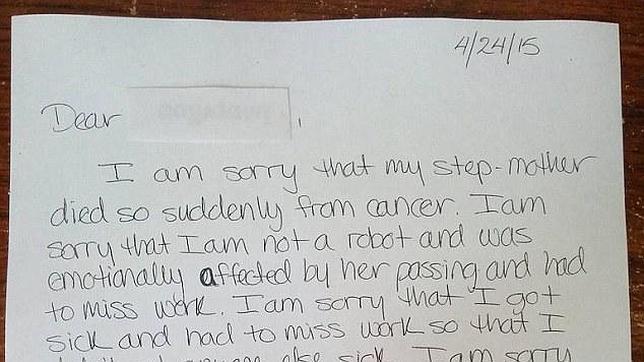 4/24/15
Dear ,
I am sorry that my step-mother
died so suddenly from cancer. I am
sorry that I am not a robot and was
emotionally affected by her passing and had
to miss work. I am sorry that I got
sick and had to miss work so that I
else sick. I am sorry